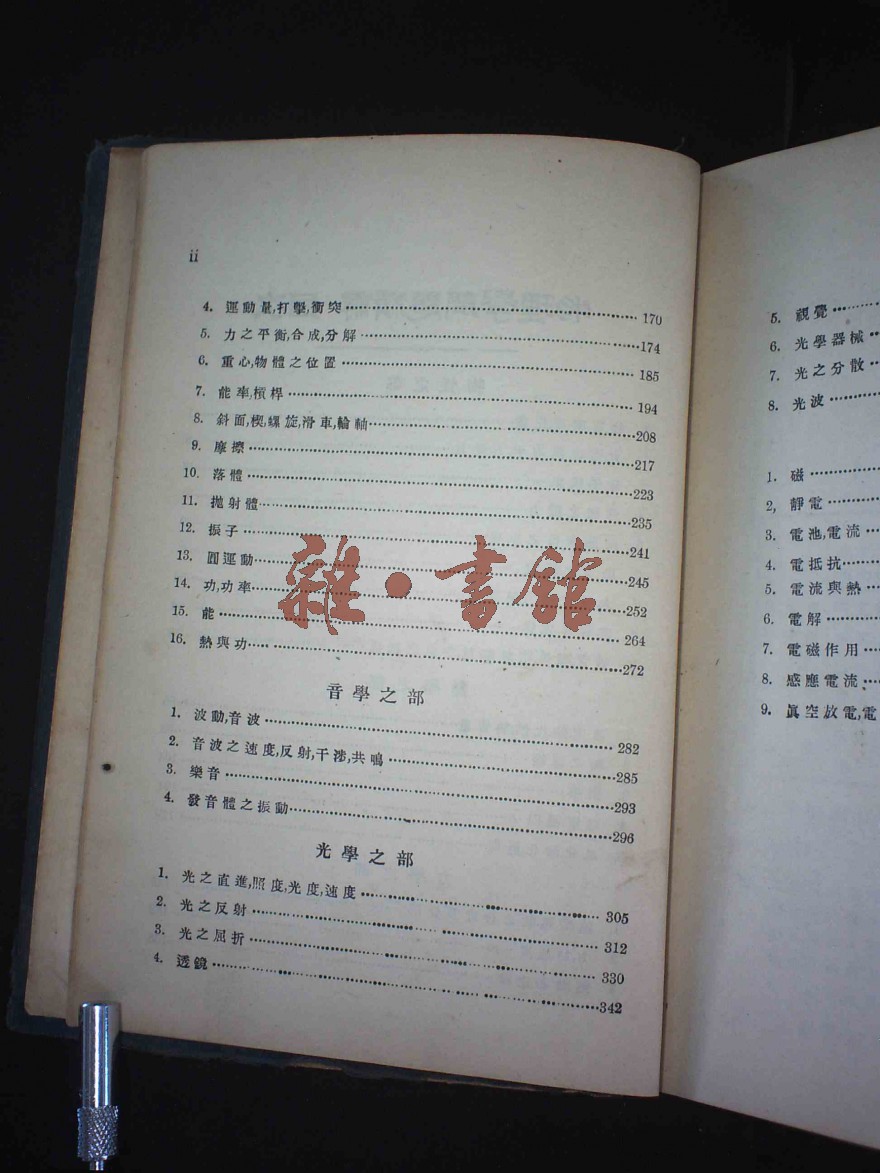 ii
4. 運動量,打擊,衝突 170
5. 力之平衡,合成,分解 174
6. 重心,物體之位置 185
7. 能率,槓桿 194
8. 斜面,楔,螺旋,滑車,輪軸 208
9. 摩擦 217
10. 落體 223
11. 拋射體 235
12. 振子 241
13. 圓運動 245
14. 功,功率 252
15. 能 264
16. 熱與功 272
雜·書館
音學之部
1. 波動,音波 282
2. 音波之速度,反射,干涉,共鳴 285
3. 樂音 293
4. 發音體之振動 296
光學之部
1. 光之直進,照度,光度,速度 305
2. 光之反射 312
3. 光之屈折 330
4. 透鏡 342
5. 視覺
6. 光學器械
7. 光之分散
8. 光波
1. 磁
2, 靜電
3. 電池,電流
4. 電抵抗
5. 電流與熱
6. 電解
7. 電磁作用
8. 感應電流
9. 眞空放電,電